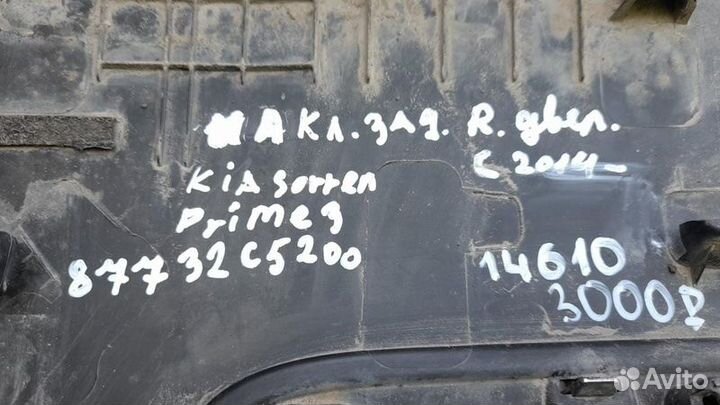 НАКЛ. ЗАД. R. двер.
с 2014-
KiA Sorren
Prime 3
87732C5200
14610
3000р
Avito